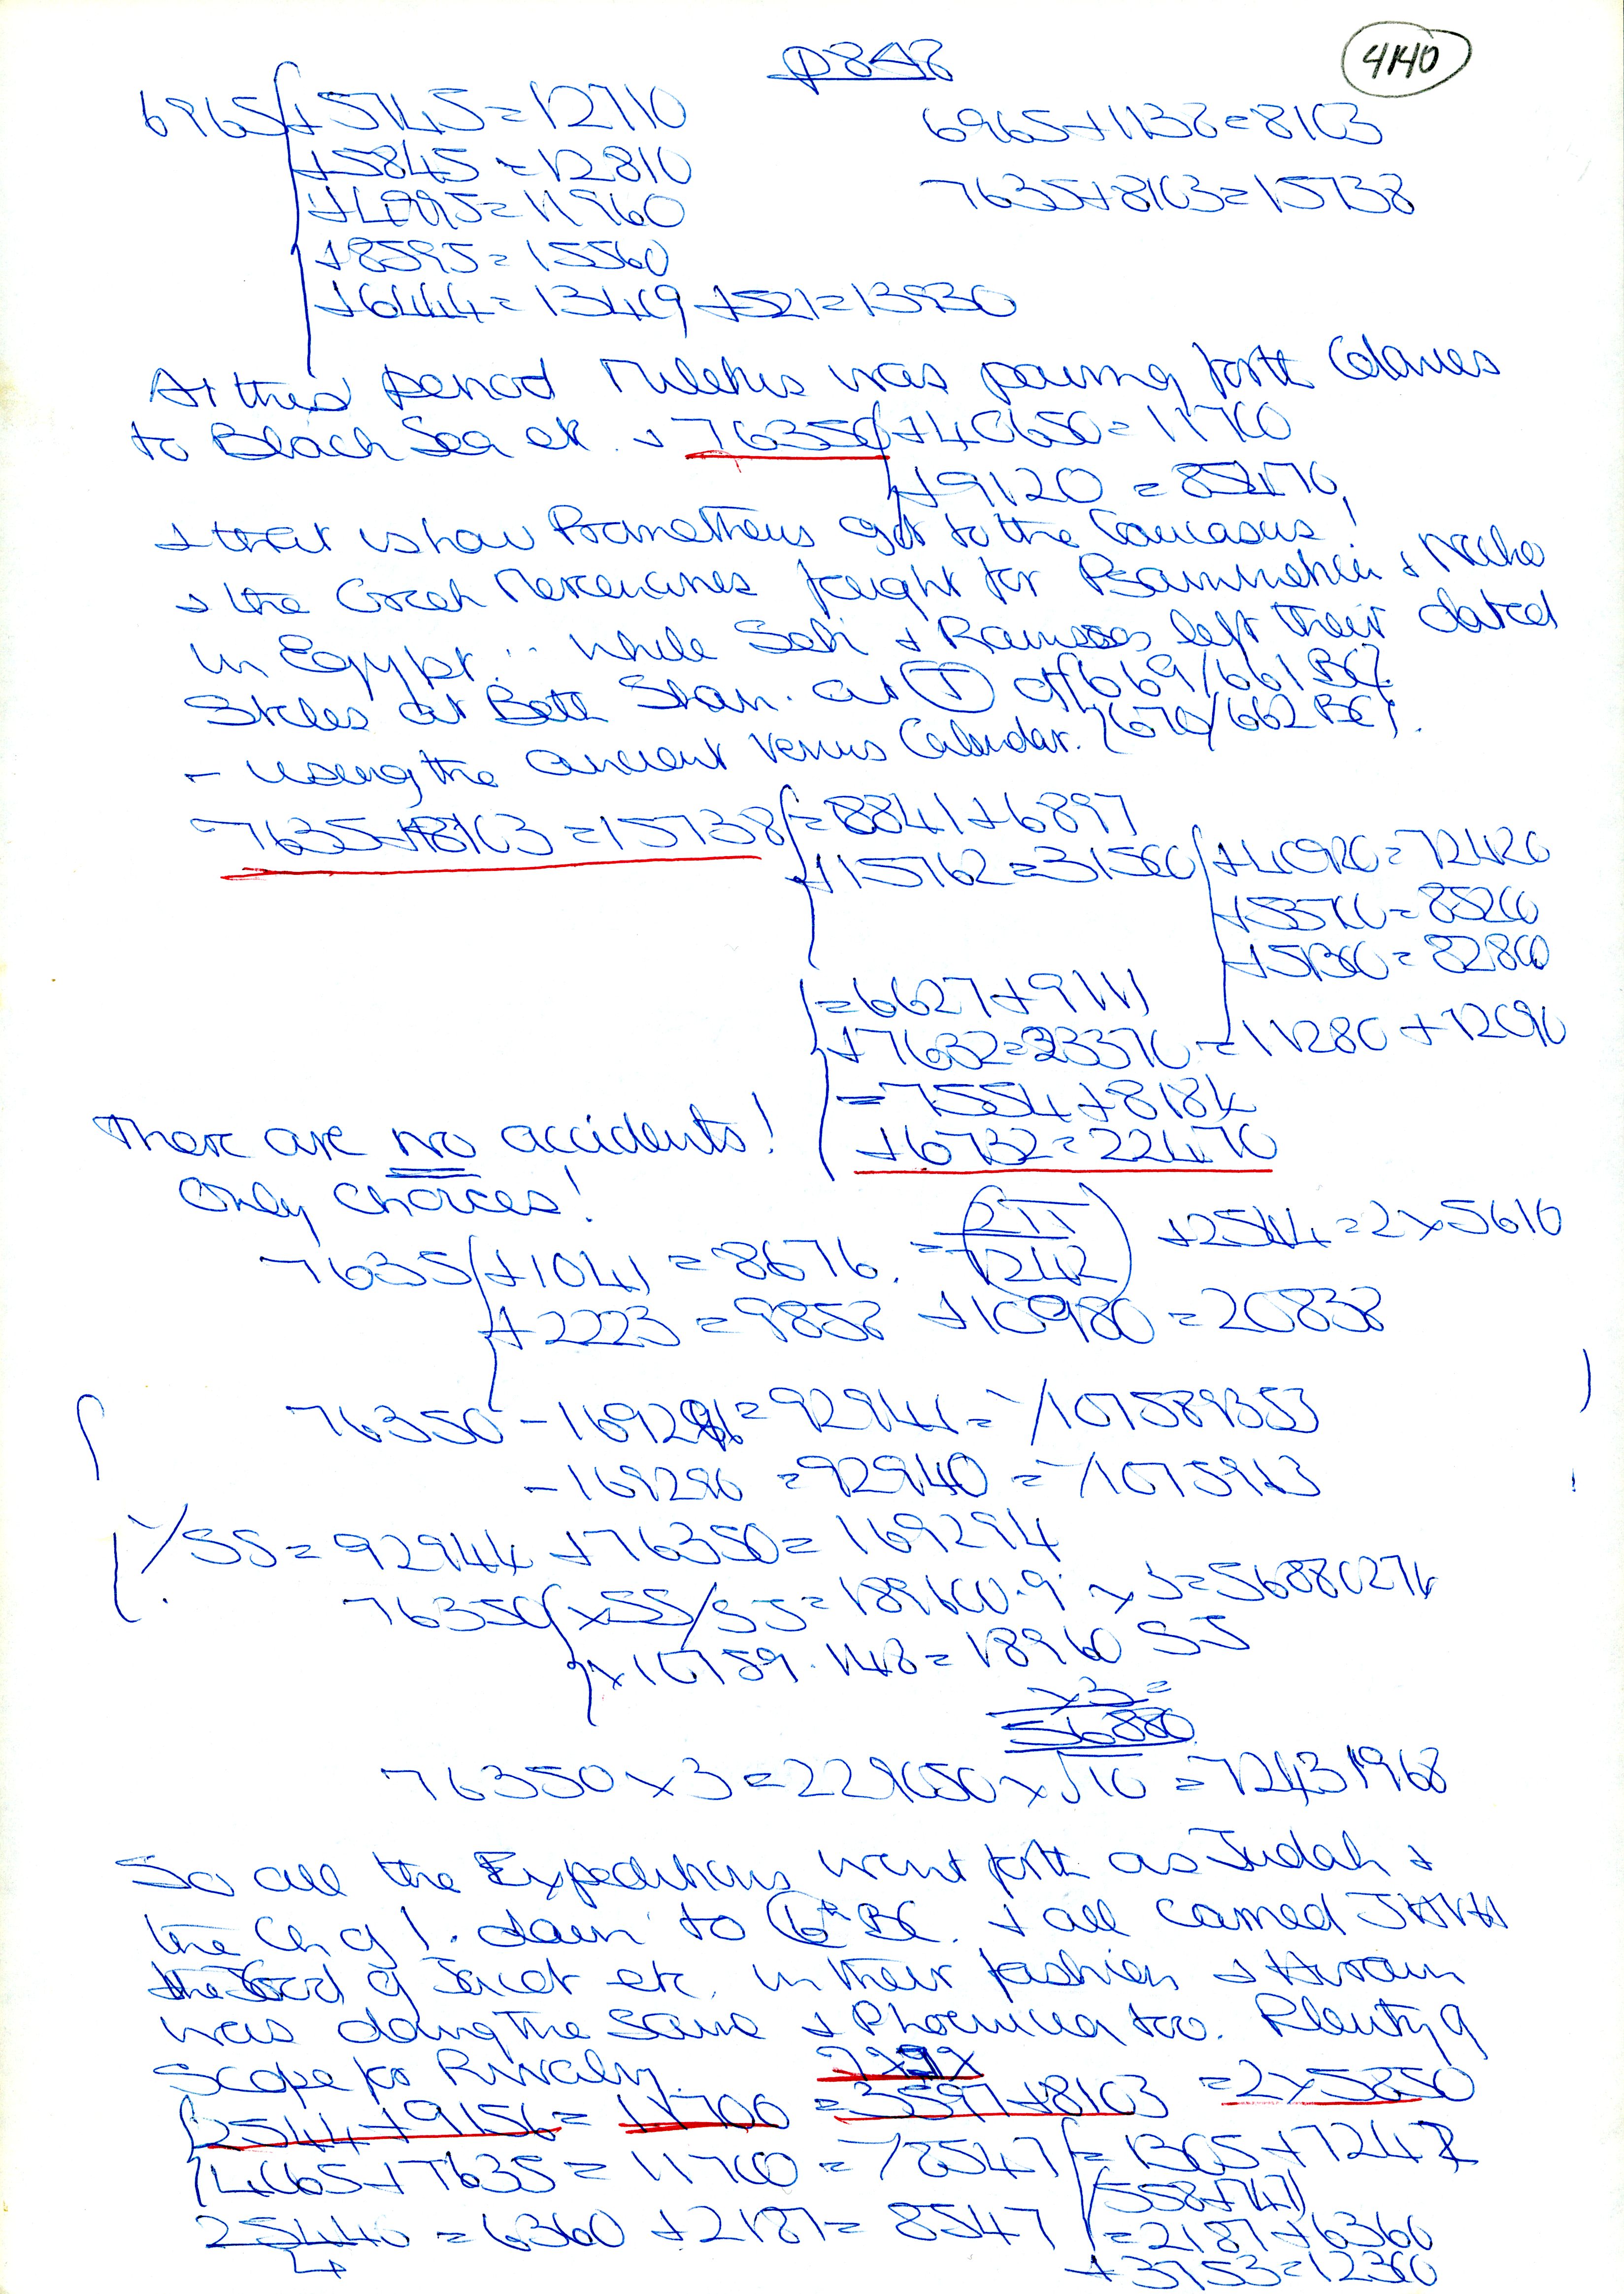 p848
4140
6965 +5745=12710
+5845=12810
+4995=11960
+8595=15560
+6444=13409 +521=13930
6965+1138=8103
7635+8103=15738
At this period Miletus was pouring forth Colonies
to Black Sea etc. + 76350 +40650=11700
+9120 = 85470
+ that is how Prometheus got to the Caucasus!
+ the Greek Mercenaries fought for Psammetichi + Necho
in Egypt... While Seti + Ramses left their dated
Steles at Beth Shan. as (I) of 669/661 BC
- using the ancient Venus Calendar. (670/662 BC).
7635+8103=15738 =8841+6897
+15762=31500 +40920=72420
+53700=85200
+51360=82860
=6627+9111
+7632=23370 =11280+12090
=7554+8184
+6732=22470
There are no accidents!
Only choices!
7635 +1041 =8676. =(2π/7242) +2544=2×5610
+2223 =9858 +10980=20838
76350 -169291=92941=1/107589353
-169290 =92940 =1/1075913
1/SS=92944 +76350=169294
76350 ×SS/SJ=189600.9 ×3=56880274
×10759.148=18960 SJ
×3=
56880
76350×3=229050×√10=72431968
So all the Expeditions went forth as Judah +
the Ch of I. down to 6th BC. + all carried JHVH
the God of Jacob etc. in their fashion + Hiram
was doing the same + Phoenicia too. Plenty of
Scope for Rivalry.
2544+9156= 11700 =3597+8103 =2×5850
4065+7635=11700=1/8547 =1305+7242
(558+747)
25440 =6360 +2187=8547 =2187+6360
4
+3753=12300